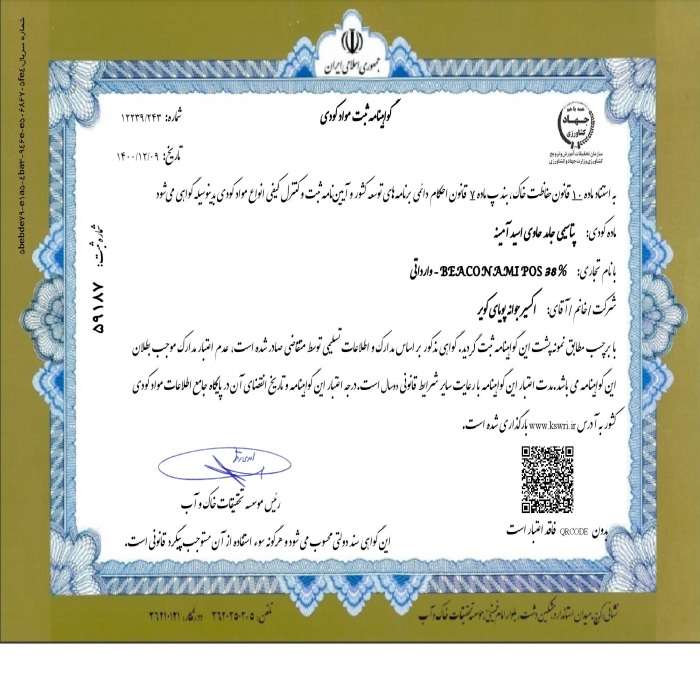 جمهوری اسلامی ایران
گواهینامه ثبت مواد کودی
شماره: ۱۲۲۳۹/۲۴۳
تاریخ: ۱۴۰۰/۱۲/۰۹
همه با هم
جهاد
کشاورزی
سازمان تحقیقات، آموزش و ترویج
کشاورزی وزارت جهاد کشاورزی
به استناد ماده ۱۰ قانون حفاظت خاک، بند پ ماده ۷ قانون احکام دائمی برنامه های توسعه کشور و آیین نامه ثبت و کنترل کیفی انواع مواد کودی بدینوسیله گواهی می شود
ماده کودی: پتاسیمی جامد حاوی اسید آمینه
با نام تجاری: BEACON AMI POS 38% - وارداتی
شرکت / خانم / آقای: اکسیر جوانه پویای کویر
با برچسب مطابق نمونه پشت این گواهینامه ثبت گردید. گواهی مذکور بر اساس مدارک و اطلاعات تسلیمی توسط متقاضی صادر شده است. عدم اعتبار مدارک موجب بطلان
این گواهینامه می باشد. مدت اعتبار این گواهینامه با رعایت سایر شرایط قانونی دو سال است. درجه اعتبار این گواهینامه و تاریخ انقضای آن در پایگاه جامع اطلاعات مواد کودی
کشور به آدرس www.kswri.ir بارگذاری شده است.
شماره ثبت: ۵۹۱۸۷
رئیس موسسه تحقیقات خاک و آب
بدون QRCODE فاقد اعتبار است
این گواهی سند دولتی محسوب می شود و هرگونه سوء استفاده از آن مستوجب پیگرد قانونی است.
تلفن: ۳۶۲۰۲۵۰۲۰۵ دورنگار: ۳۶۲۱۰۱۲۱
شماره سریال: